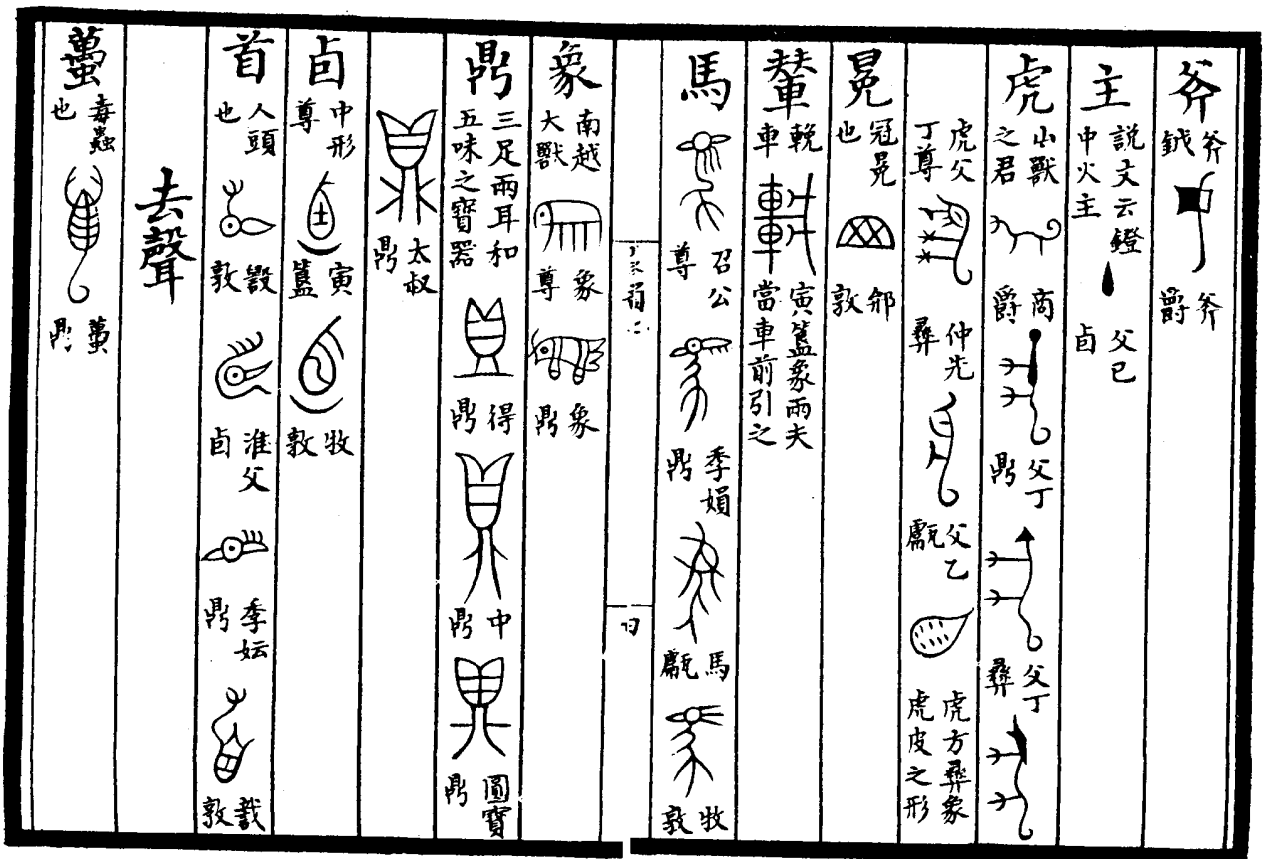 斧 斧鉞 斧爵
主 說文云鐙中火主 父已卣
虎 山獸之君 商爵 父丁鼎 父丁彝
虎父丁尊 仲先彝 父乙甗 虎方彝象虎皮之形
冕 冠冕也 敦
輦 輓車 寅簋象兩夫當車前引之
馬 召公尊 季娟鼎 馬甗 牧敦
象 南越大獸 象尊 象鼎
鼎 三足兩耳和五味之寶器 得鼎 中鼎 圓寶鼎
太叔鼎
卣 中形尊 寅簋 牧敦
首 人頭也 敦 淮父卣 季妘鼎 敦
去聲
萬 毒蟲也 萬鼎